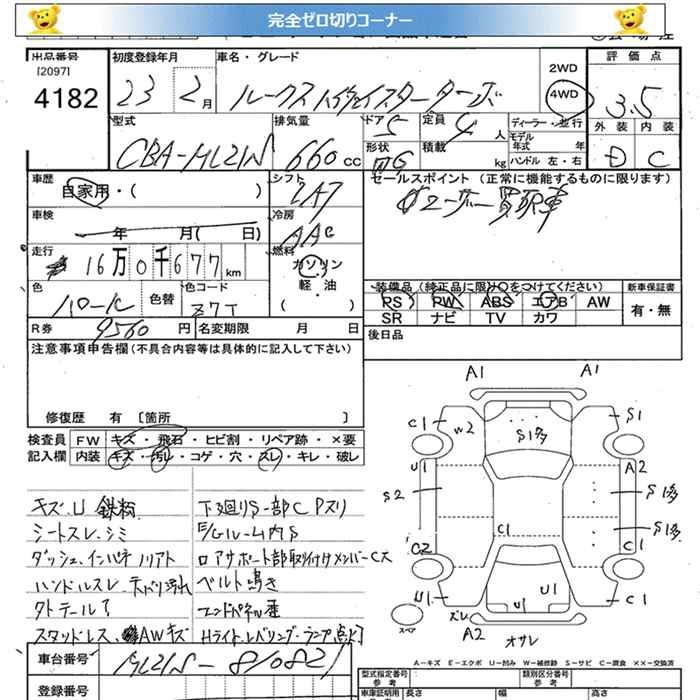 完全ゼロ切りコーナー
出品番号
[2097]
4182
初度登録年月
23 2月
車名・グレード
ルークス ハイウェイスターターボ
2WD
4WD
評価点
3.5
型式
CBA-ML21S
排気量
660cc
ドア 5
形状
定員 4人
積載 kg
ディーラー・並行
モデル
年式 年
ハンドル 左・右
外装 内装
D C
車歴
自家用・( )
シフト
IA7
セールスポイント (正常に機能するものに限ります)
ユーザー買取車
車検
年 月( 日)
冷房
AAC
走行
16万0千677km
燃料
ガソリン
軽・油
( )
色
パール
色替
色コード
Z7T
装備品(純正品に限り○をつけてください)
新車保証書
PS RW ABS エアB AW
SR ナビ TV カワ
有・無
R券 9560円
名変期限 月 日
後日品
注意事項申告欄(不具合内容等は具体的に記入して下さい)
修復歴 有 [箇所 ]
検査員
記入欄
FW キズ・飛石・ヒビ割・リペア跡・×要
内装 キズ・汚レ・コゲ・穴・スレ・キレ・破レ
キズ.U 鉄粉
シートスレ.シミ
ダッシュ.インパネノリアト
ハンドルスレ.天バリ汚れ
タトテールT
スタッドレス AWキズ
下廻りS一部CPスリ
E/Gルーム内S
ロアサポート部取り付けメンバーC大
ベルト鳴き
エンドパネル歪
Hライトレベリングランプ点とう
A1 A1
C1 W2 S1多 S1
U1 A2
S2 S1多
C1 S1多
C2 C1
U1 U1 U1 C1
スペア
ズレ
A2 オサレ
A-キズ E-エクボ U-凹み W-補修跡 S-サビ C-腐食 XX-交換済
車台番号
ML21S-810821
登録番号
型式指定番号
参考
類別区分番号
参考
車庫証明用
長さ 幅 高さ